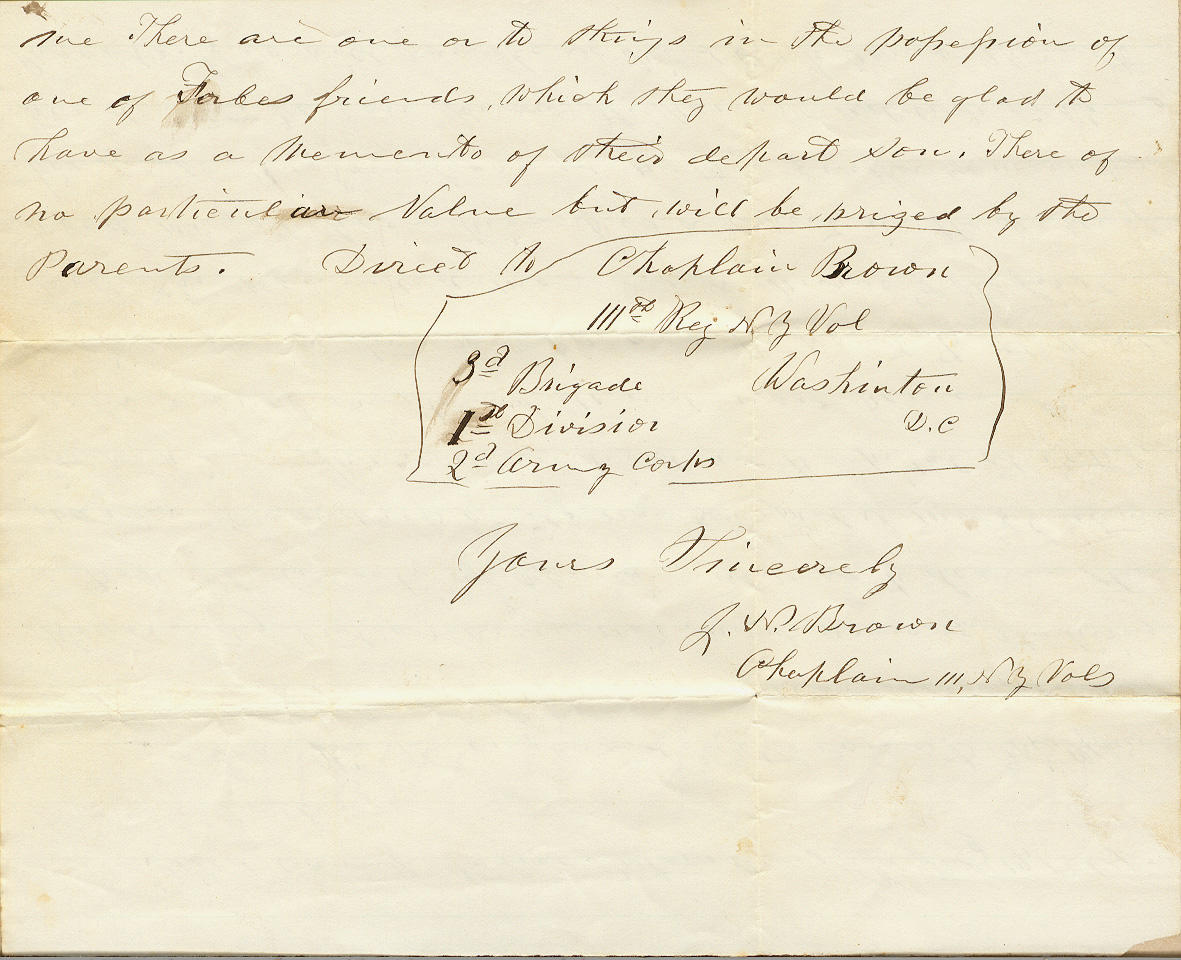 me There are one or to things in the possession of
one of Forbes friends, which they would be glad to
have as a Memento of their depart Son. There of
no particular Value but will be prized by the
Parents. Direct to Chaplain Brown
111th Reg N Y Vol
3d Brigade Washinton
1st Division D.C
2d Army Corps
Yours Sincerely
J. N. Brown
Chaplain 111, N Y Vols